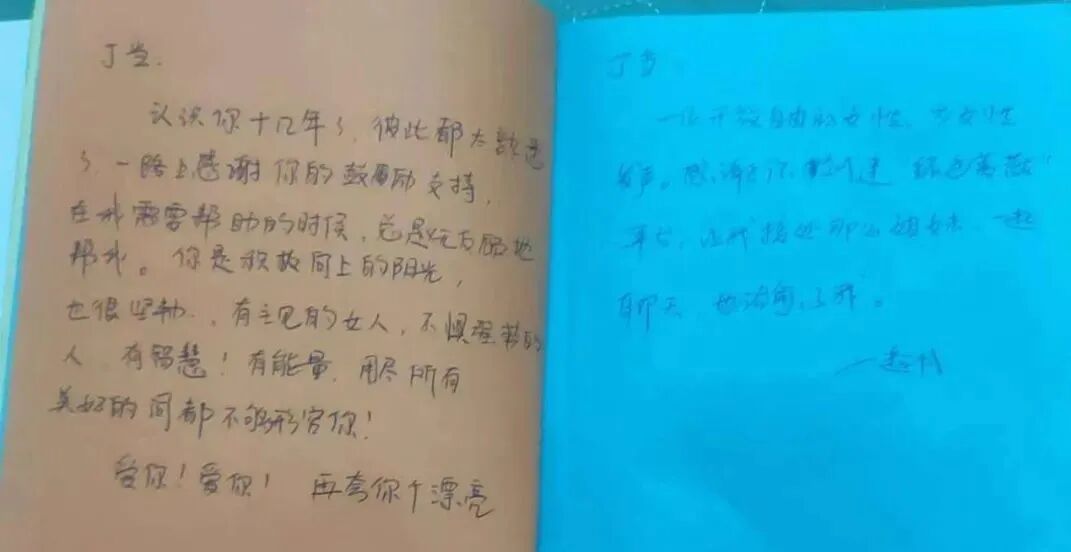 丁当.
认识你十几年了，彼此都太熟悉
了，一路上感谢你的鼓励支持，
在我需要帮助的时候，总是
帮我。你是积极向上的阳光，
也很坚韧，有主见的女人，不惧
人，有智慧！有能量，用尽所有
美好的词都不够形容你！
爱你！爱你！ 再夸你个漂亮
丁当.
一位开放自由的女性，为女性
发声。感谢你 绿色蔷薇
让我接近那么姐妹，一起
聊天，也治愈了我。